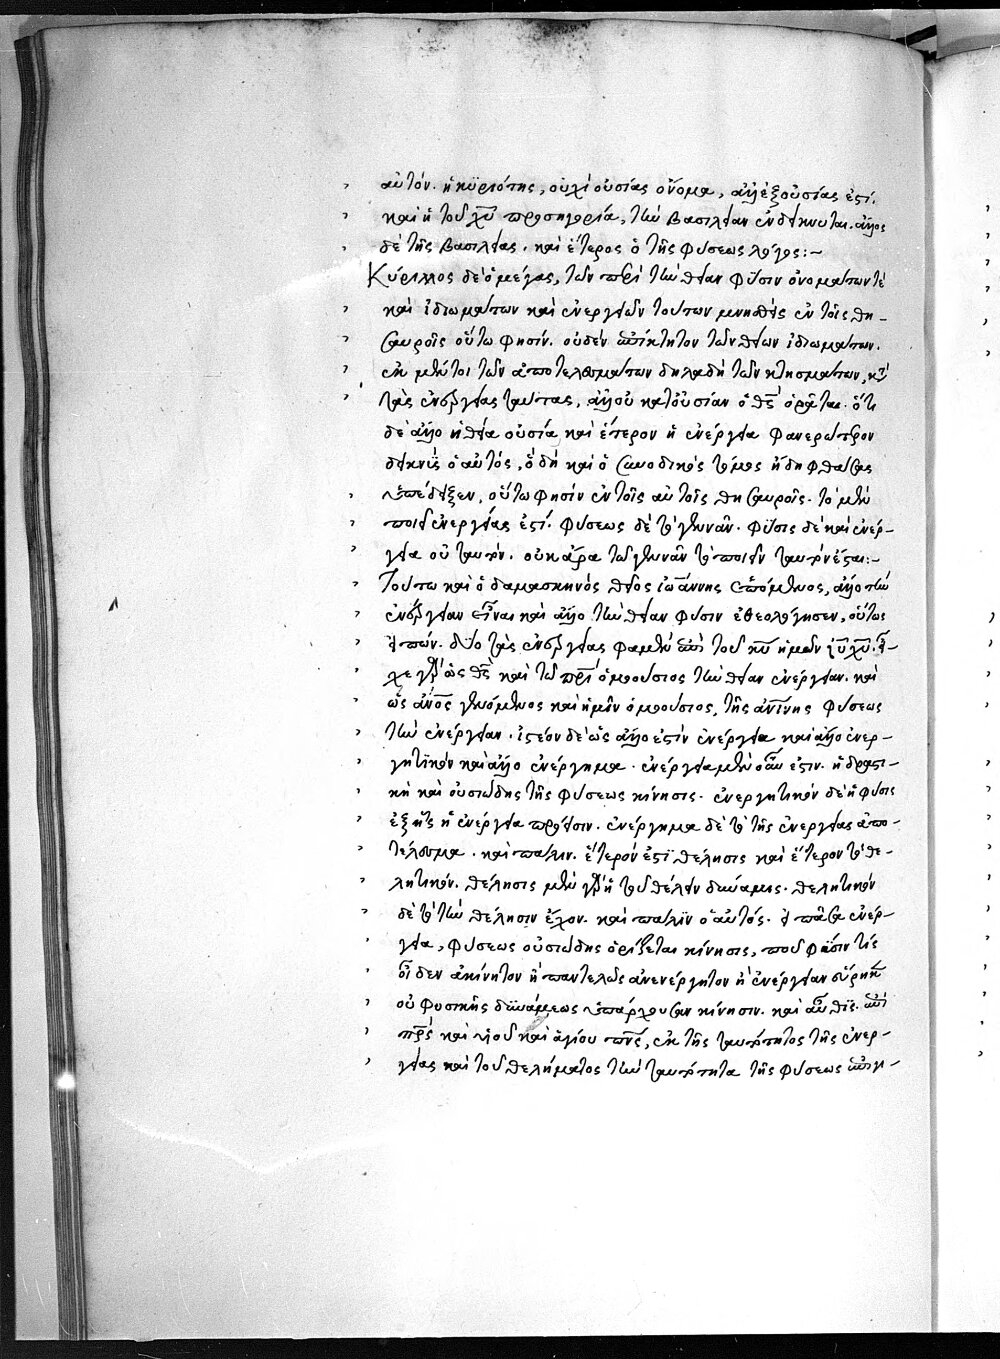 αὐτόν. ἡ κυριότης, οὐχὶ οὐσίας ὄνομα, ἀλλ' ἐξουσίας ἐστί.
καὶ ἡ τοῦ χυ προσηγορία, τὴν βασιλείαν ἐνδείκνυται. ἄλλος
δὲ τῆς βασιλείας. καὶ ἕτερος ὁ τῆς φύσεως λόγος:~
Κύριλλος δὲ ὁ μέγας, τῶν περὶ τὴν θείαν φύσιν ὀνομάτων τὲ
καὶ ἰδιωμάτων καὶ ἐνεργειῶν τούτων μνησθεὶς ἐν τοῖς θη-
σαυροῖς οὕτω φησίν. οὐδὲν ἐπίκτητον τῶν θείων ἰδιωμάτων.
ἐκ μέντοι τῶν ἀποτελεσμάτων δηλαδὴ τῶν κτισμάτων, κατὰ
τὰς ἐνεργείας ταύτας, ἀλλ' οὐ κατ' οὐσίαν ὁ θς ὁρᾶται. ὅτι
δὲ ἄλλο ἡ θεία οὐσία καὶ ἕτερον ἡ ἐνέργεια φανερώτερον
δεικνὺς ὁ αὐτός, ὃ δὴ καὶ ὁ συνοδικὸς τόμος ἤδη φθάσας
ὑπέδειξεν, οὕτω φησὶν ἐν τοῖς αὐτοῖς θησαυροῖς. τὸ μὲν
ποιεῖν ἐνεργείας ἐστί. φύσεως δὲ τὸ γεννᾶν. φύσις δὲ καὶ ἐνέρ-
γεια οὐ ταυτόν. οὐκ ἄρα τῶ γεννᾶν τὸ ποιεῖν ταυτὸν ἔσται:~
Τούτω καὶ ὁ δαμασκηνὸς θεῖος ἰωάννης ἑπόμενος, ἄλλο τὴν
ἐνέργειαν εἶναι καὶ ἄλλο τὴν θείαν φύσιν ἐθεολόγησεν, οὕτως
εἰπών. δύο τὰς ἐνεργείας φαμὲν ἐπὶ τοῦ κυ ἡμῶν ιυ χυ. εἶ-
χε γὰρ ὡς θς καὶ τῶ πρι ὁμοούσιος τὴν θείαν ἐνέργειαν. καὶ
ὡς ἄνος γενόμενος καὶ ἡμῖν ὁμοούσιος, τῆς ἀνίνης φύσεως
τὴν ἐνέργειαν. ἰστέον δὲ ὡς ἄλλο ἐστὶν ἐνέργεια καὶ ἄλλο ἐνερ-
γητικὸν καὶ ἄλλο ἐνέργημα. ἐνέργεια μὲν οὖν ἐστιν. ἡ δραστι-
κὴ καὶ οὐσιώδης τῆς φύσεως κίνησις. ἐνεργητικὸν δὲ ἡ φύσις
ἐξ ἧς ἡ ἐνέργεια πρόεισιν. ἐνέργημα δὲ τὸ τῆς ἐνεργείας ἀπο-
τέλεσμα. καὶ πάλιν. ἕτερόν ἐστι θέλησις καὶ ἕτερον τὸ θε-
λητικόν. θέλησις μὲν γὰρ ἡ τοῦ θέλειν δύναμις. θελητικὸν
δὲ τὸ τὴν θέλησιν ἔχον. καὶ πάλιν ὁ αὐτός. εἰ πᾶσα ἐνέρ-
γεια, φύσεως οὐσιώδης ὁρίζεται κίνησις, ποῦ φύσιν τίς
οἶδεν ἀκίνητον ἢ παντελῶς ἀνενέργητον ἢ ἐνέργειαν εὕρηκεν
οὐ φυσικῆς δυνάμεως ὑπάρχουσαν κίνησιν. καὶ αὖθις. ἐπὶ
πρς καὶ υἱοῦ καὶ ἁγίου πνς, ἐκ τῆς ταυτότητος τῆς ἐνερ-
γείας καὶ τοῦ θελήματος τὴν ταυτότητα τῆς φύσεως ἐπιγι-